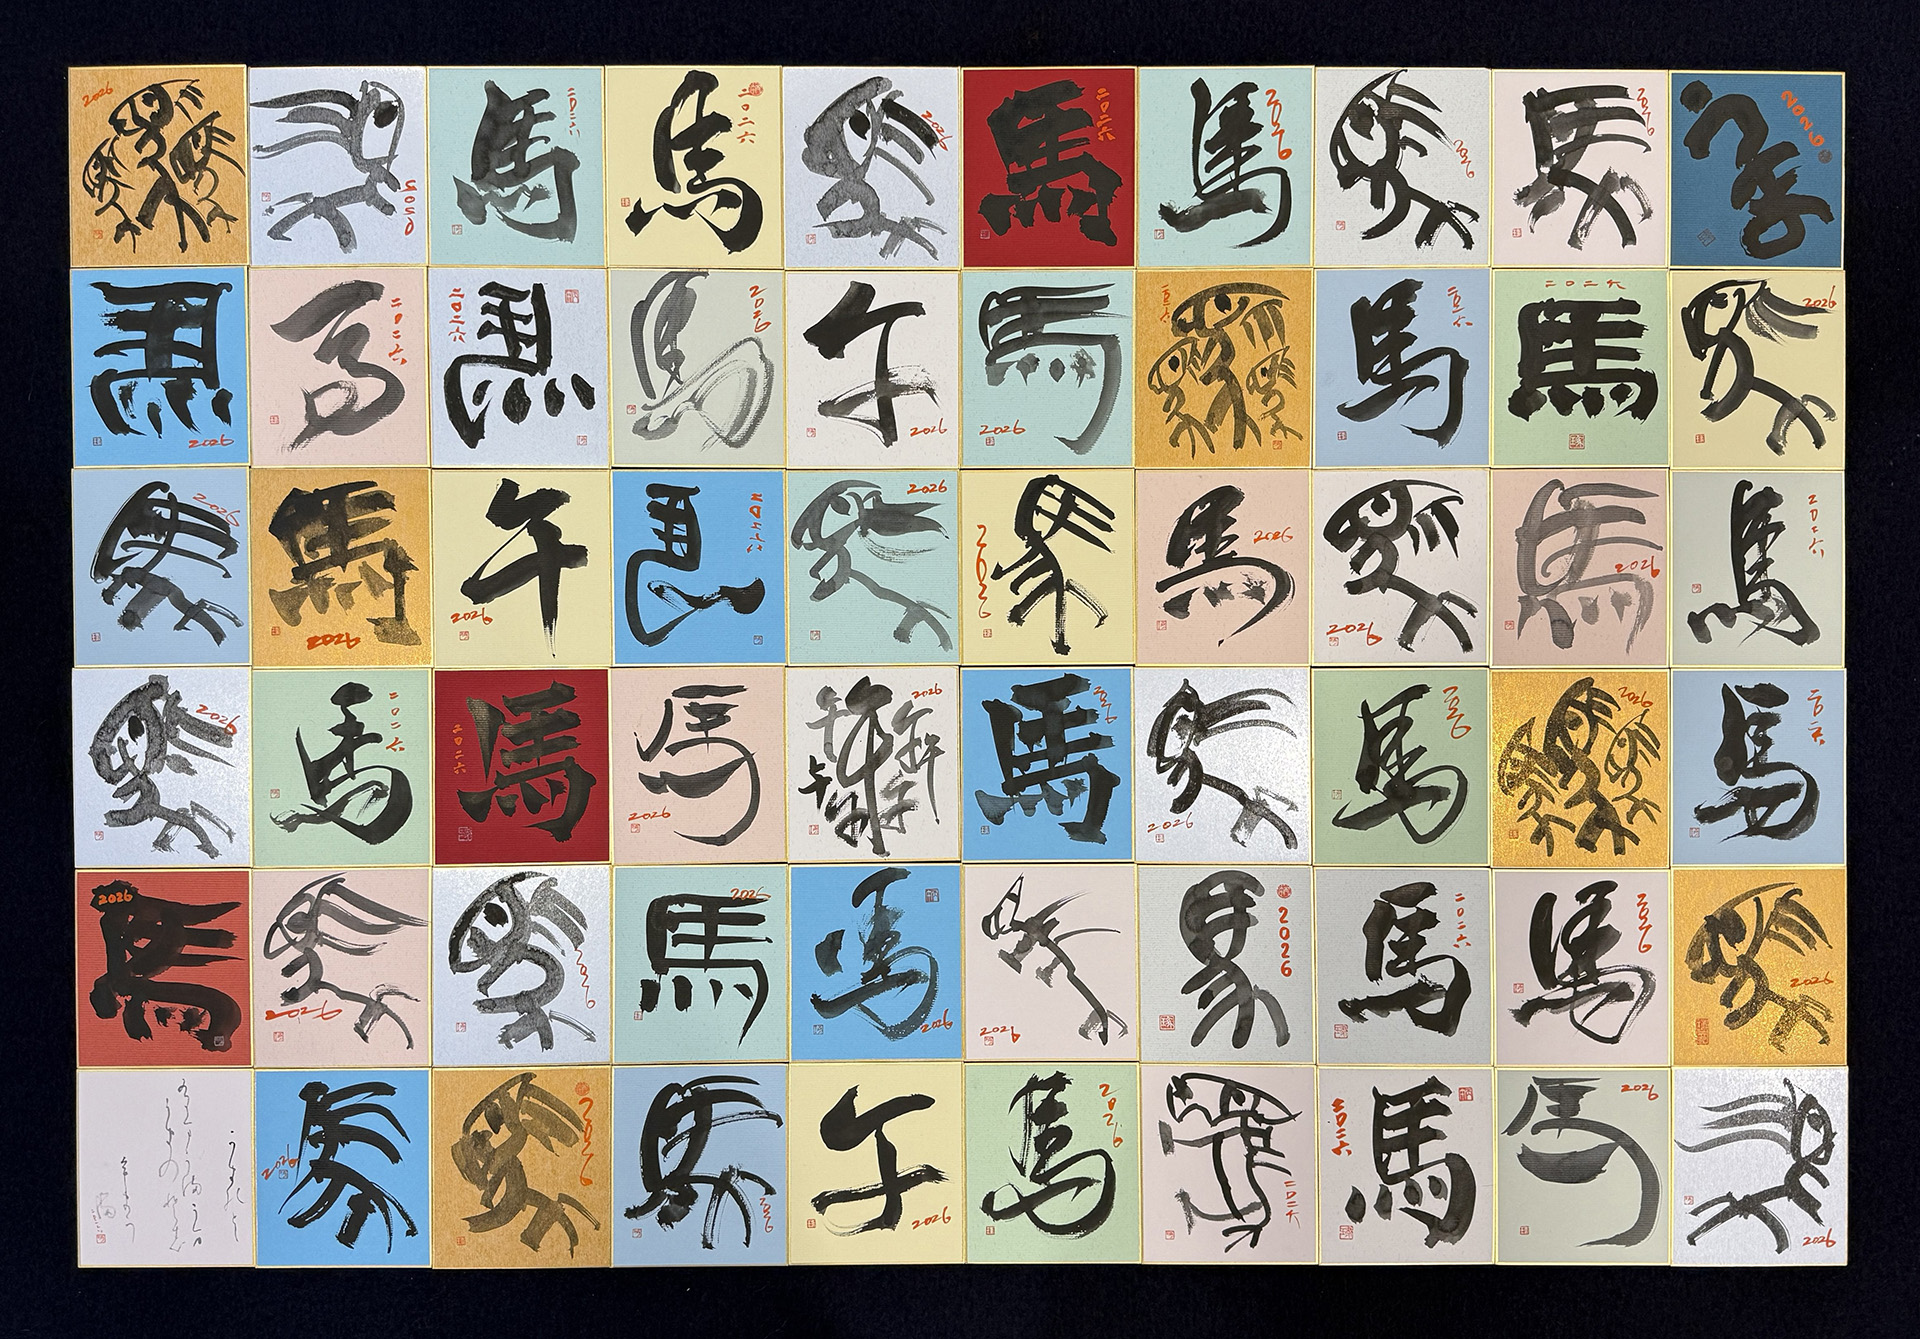 2026
馬
二〇二六
馬
二〇二六
馬
2026
馬
二〇二六
馬
2026
馬
2026
馬
2026
2026
馬
2026
馬
二〇二六
馬
二〇二六
馬
2026
午
2026
馬
2026
二〇二六
馬
二〇二六
二〇二六
馬
馬
2026
馬
2026
馬
2026
午
2026
馬
二〇二六
馬
2026
馬
2026
馬
2026
馬
2026
馬
2026
馬
二〇二六
馬
2026
馬
二〇二六
馬
二〇二六
馬
2026
午
2026
馬
2026
馬
2026
馬
2026
2026
馬
二〇二六
2026
馬
馬
2026
馬
2026
馬
2026
馬
2026
馬
2026
馬
2026
馬
二〇二六
馬
2026
馬
2026
馬
2026
馬
2026
馬
2026
午
2026
馬
2026
馬
二〇二六
馬
二〇二六
馬
2026
馬
2026